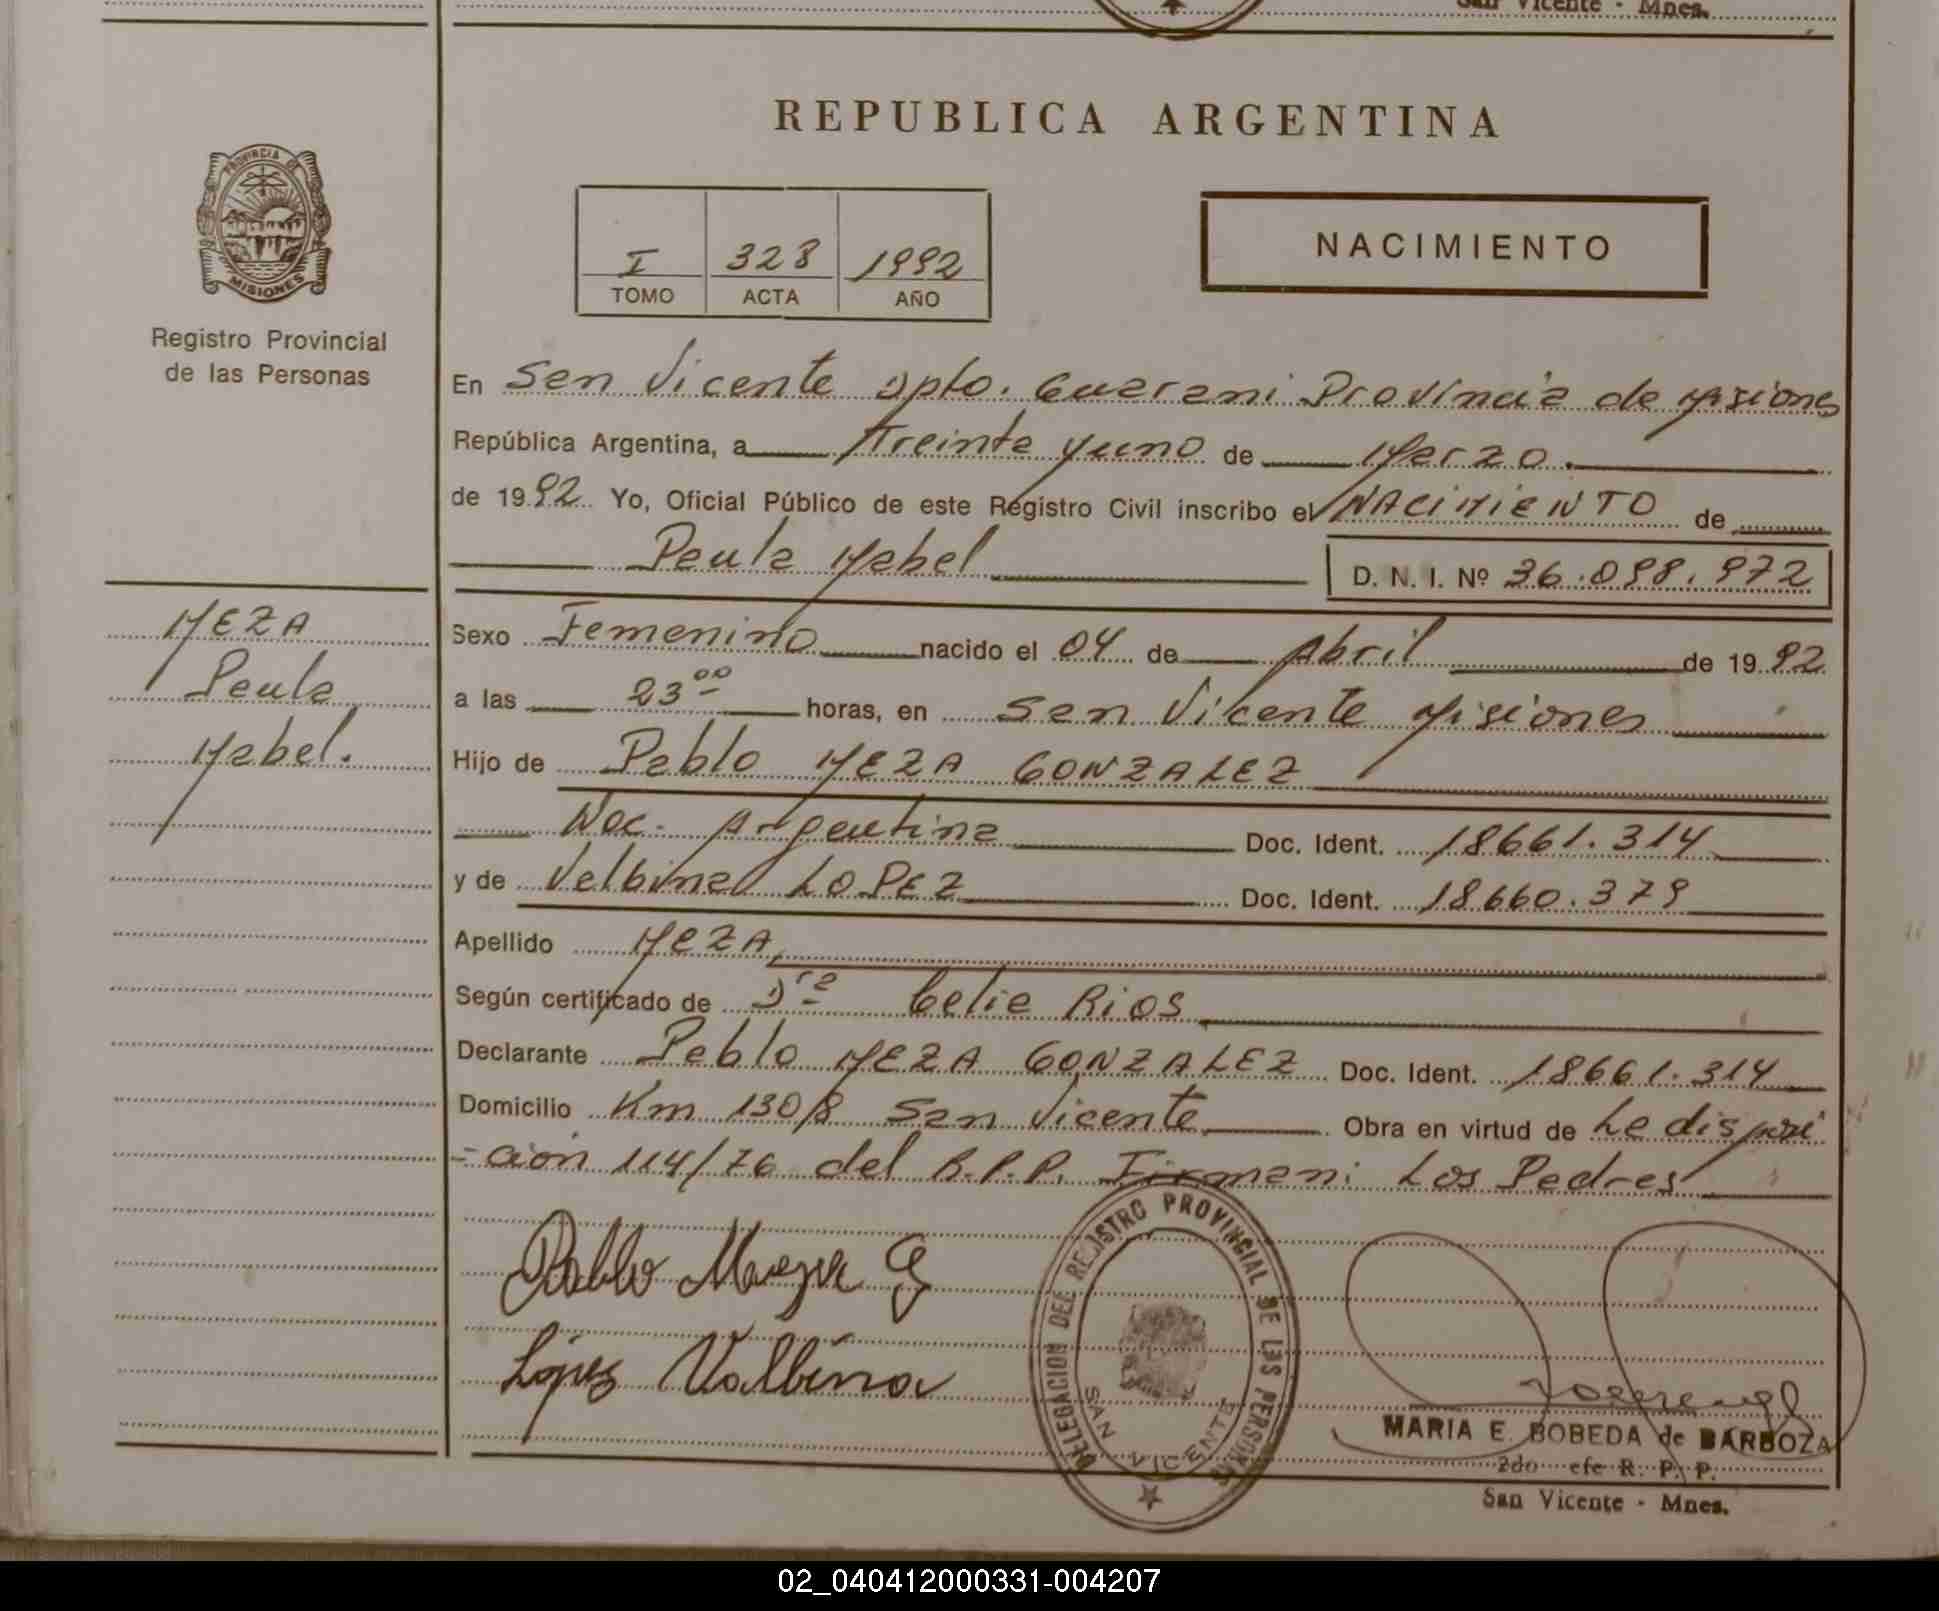 San Vicente - Mnes.
REPUBLICA ARGENTINA
PROVINCIA DE
MISIONES
Registro Provincial
de las Personas
I 328 1992
TOMO ACTA AÑO
NACIMIENTO
En San Vicente Dpto. Guarani Provincia de Misiones
República Argentina, a Treinta y uno de Marzo.
de 1992 Yo, Oficial Público de este Registro Civil inscribo el NACIMIENTO de
Paula Mabel D. N. I. Nº 36.098.972
MEZA
Paula
Mabel.
Sexo Femenino nacido el 04 de Abril de 1992
a las 23 00 horas, en San Vicente Misiones
Hijo de Pablo MEZA GONZALEZ
Nac. Argentina Doc. Ident. 18661.314
y de Valbina LOPEZ Doc. Ident. 18660.379
Apellido MEZA
Según certificado de Dra Celia Rios
Declarante Pablo MEZA GONZALEZ Doc. Ident. 18661.314
Domicilio Km 1308 San Vicente Obra en virtud de La disposi
-ción 114/76 del R.P.P. Firman: Los Padres
Pablo Meza G
López Valbina
DELEGACION DEL REGISTRO PROVINCIAL DE LAS PERSONAS
SAN VICENTE
MARIA E. BOBEDA de BARBOZA
2do efe R. P. P.
San Vicente - Mnes.
02_040412000331-004207